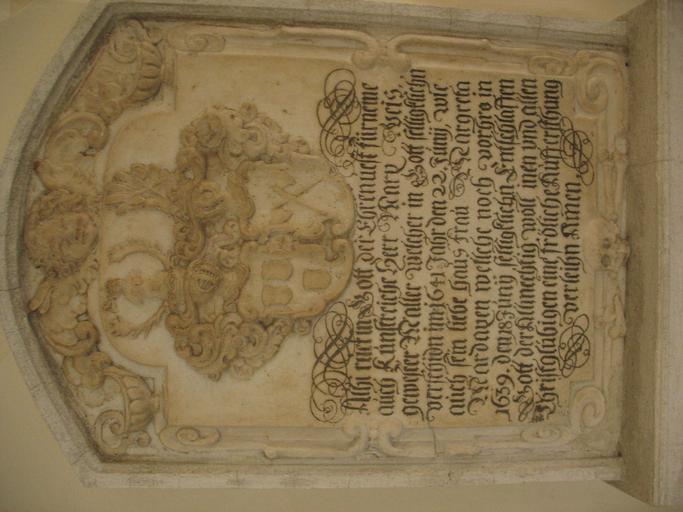 Alhi ruet in Gott der Ehrnuest fürneme
auch Kunstreiche Herr Marx Weis
gewöster Maller Welicher in Gott seligklich
verschiden im 1641 Jahr den 22 Junij, wie
auch sein liebe Haus frau Margreta
welche noch vor Ihro in
1639 den 8 Junij seligklich Entschlaffen
Gott der Allmechtig woll Inen und allen
Christglaübigen eine frödliche Aufersthung
verleihen Amen